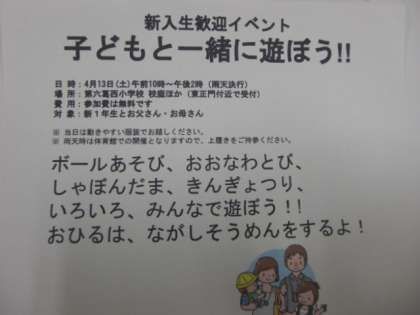 新入生歓迎イベント
子どもと一緒に遊ぼう!!
日 時：4月13日(土)午前10時～午後2時 (雨天決行)
場 所：第六葛西小学校 校庭ほか (東正門付近で受付)
費 用：参加費は無料です
対 象：新１年生とお父さん・お母さん
※ 当日は動きやすい服装でお越しください。
※ 雨天時は体育館での開催となりますので、上履きをご持参ください。
ボールあそび、おおなわとび、
しゃぼんだま、きんぎょつり、
いろいろ、みんなで遊ぼう！！
おひるは、ながしそうめんをするよ！